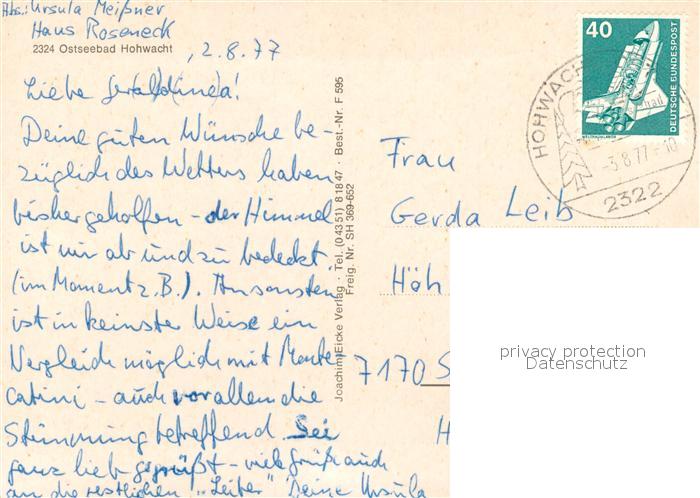 Abs.: Ursula Meißner
Haus Roseneck
2324 Ostseebad Hohwacht
, 2.8.77
Liebe Geraldinea!
Deine guten Wünsche be-
züglich des Wetters haben
bisher geholfen - der Himmel
ist nur ab und zu bedeckt
(im Moment z.B.). Ansonsten
ist in keinster Weise ein
Vergleich möglich mit Monte
Catini - auch vor allen die
Stimmung betreffend. Sei
ganz lieb gegrüßt - viele Grüße auch
an die restlichen "Leiber" Deine Ursula
Joachim Eicke Verlag · Tel. (04351) 81847 · Best.-Nr. F 595
Freig. Nr. SH 369-652
40
DEUTSCHE BUNDESPOST
WELTRAUMLABOR
HOHWACH
-3.8.77-10
2322
Frau
Gerda Leib
Höh
7170 S
H
privacy protection
Datenschutz